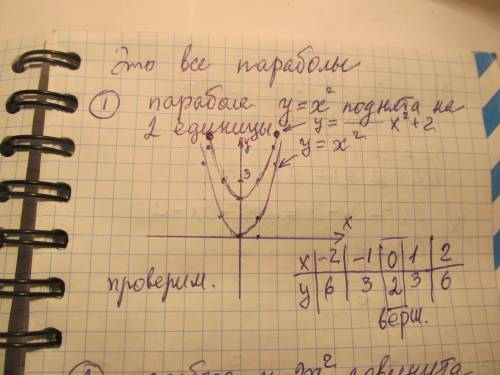 Это все параболы
① парабола y=x² поднята на
2 единицы
y= x²+2
y=x²
y
3
x
x -2 -1 0 1 2
y 6 3 2 3 6
проверим.
верш.